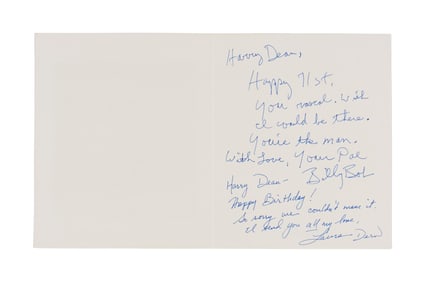 Harry Dean,
Happy 71st.
You rascal. Wish
I could be there.
You're the man.
With Love, Your Pal
Billy Bob
Harry Dean-
Happy Birthday!
So sorry we couldn't make it.
I send you all my love,
Laura Dern